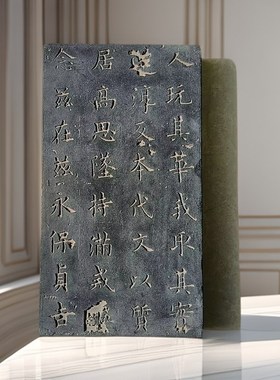 人玩其華我取其實
還淳反本代文以質
居高思墜持滿戒
念茲在茲永保貞吉